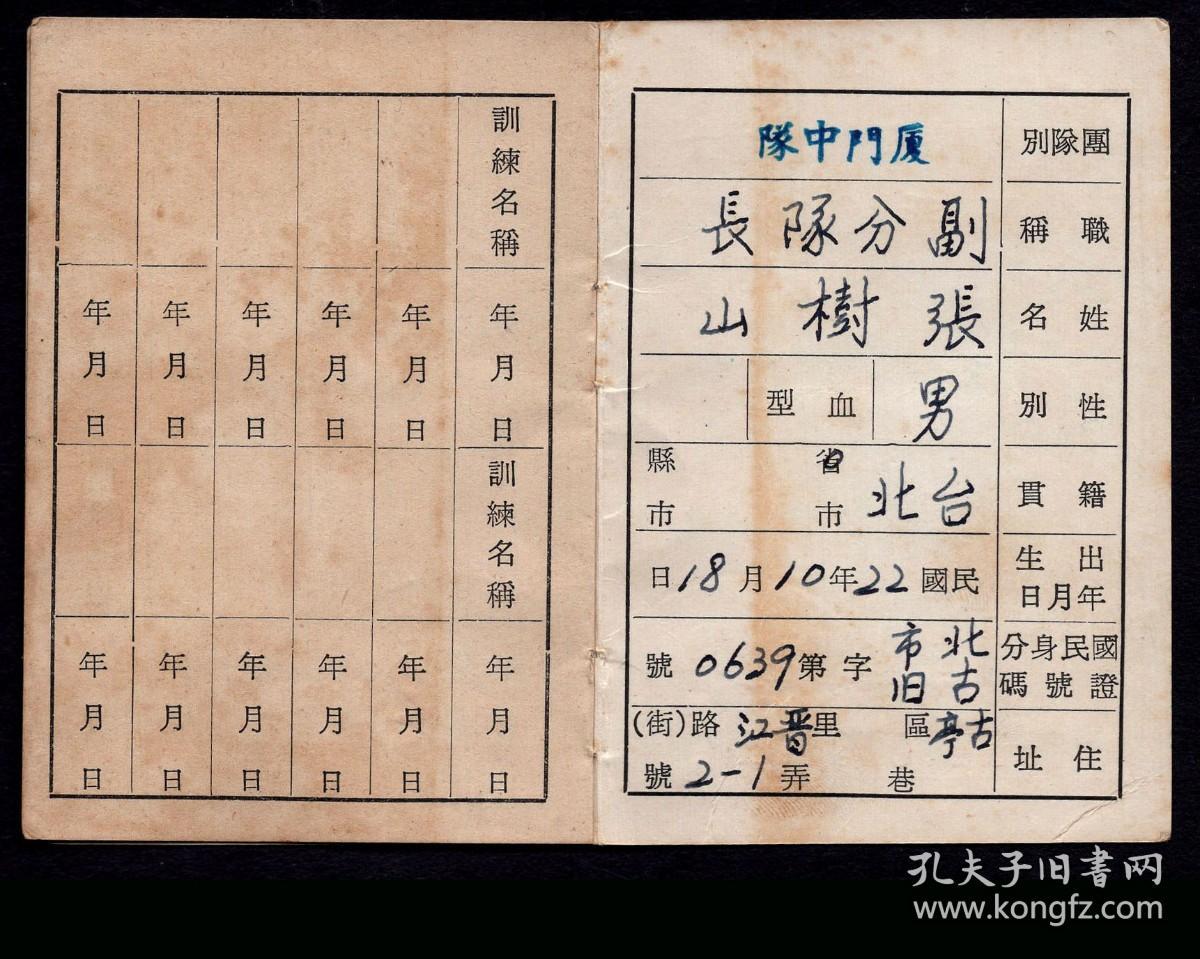 團隊別 厦門中隊
職稱 副分隊長
姓名 張樹山
性別 男 血型
籍貫 台北 省市 縣市
出生年月日 民國22年10月18日
國民身分證號碼 北市古旧字第0639號
住址 古亭區 里晋江路(街)
巷 弄2-1號
訓練名稱
年月日 年月日 年月日 年月日 年月日 年月日
訓練名稱
年月日 年月日 年月日 年月日 年月日 年月日
孔夫子旧书网
www.kongfz.com